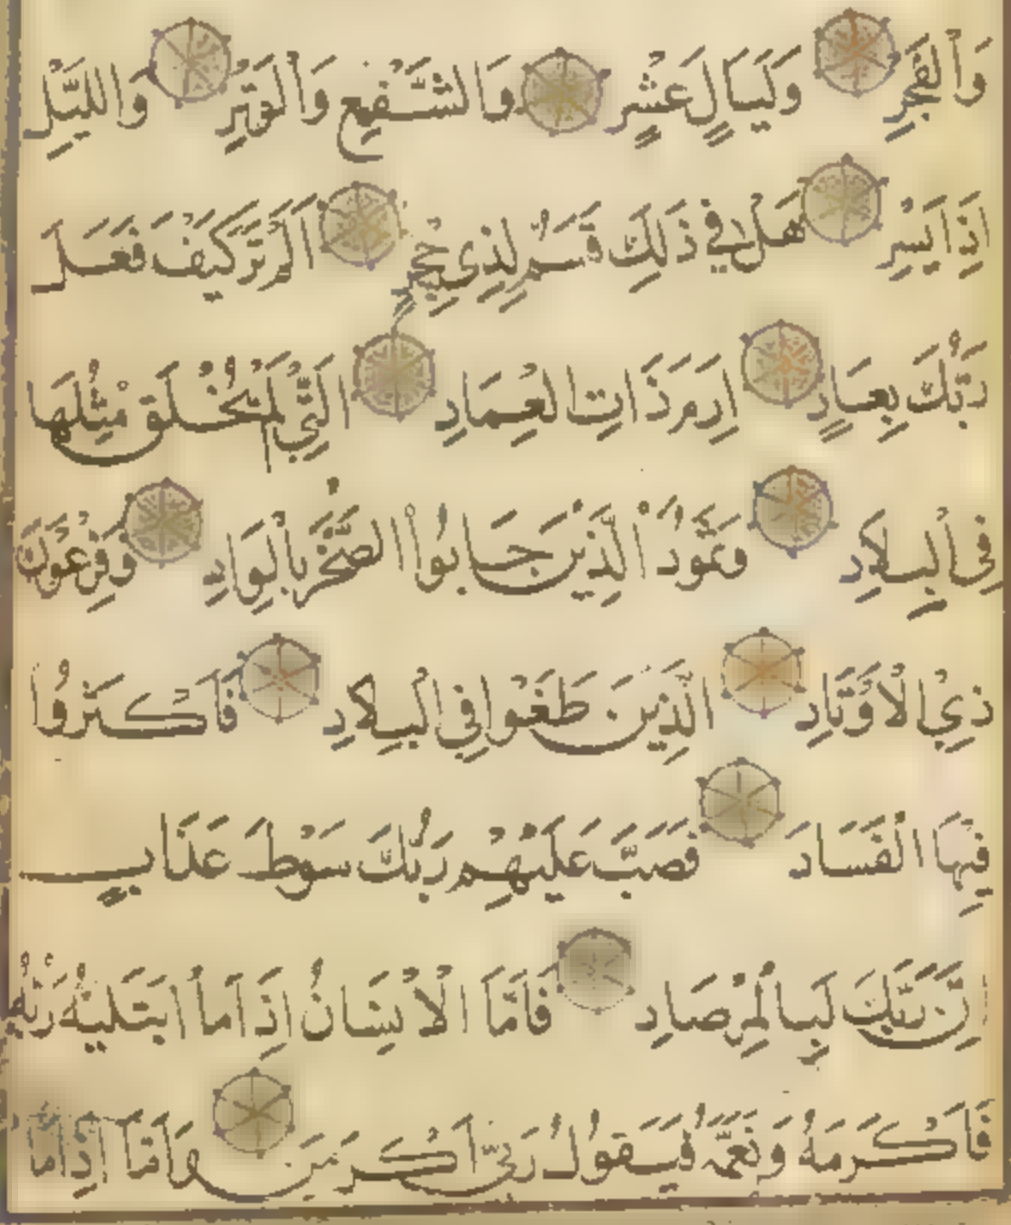 وَالْفَجْرِ وَلَيَالٍ عَشْرٍ وَالشَّفْعِ وَالْوَتْرِ وَاللَّيْلِ
إِذَا يَسْرِ هَلْ فِي ذَلِكَ قَسَمٌ لِذِي حِجْرٍ أَلَمْ تَرَ كَيْفَ فَعَلَ
رَبُّكَ بِعَادٍ إِرَمَ ذَاتِ الْعِمَادِ الَّتِي لَمْ يُخْلَقْ مِثْلُهَا
فِي الْبِلَادِ وَثَمُودَ الَّذِينَ جَابُوا الصَّخْرَ بِالْوَادِ وَفِرْعَوْنَ
ذِي الْأَوْتَادِ الَّذِينَ طَغَوْا فِي الْبِلَادِ فَأَكْثَرُوا
فِيهَا الْفَسَادَ فَصَبَّ عَلَيْهِمْ رَبُّكَ سَوْطَ عَذَابٍ
إِنَّ رَبَّكَ لَبِالْمِرْصَادِ فَأَمَّا الْإِنْسَانُ إِذَا مَا ابْتَلَيهُ رَبُّهُ
فَأَكْرَمَهُ وَنَعَّمَهُ فَيَقُولُ رَبِّي أَكْرَمَنِ وَأَمَّا إِذَا مَا